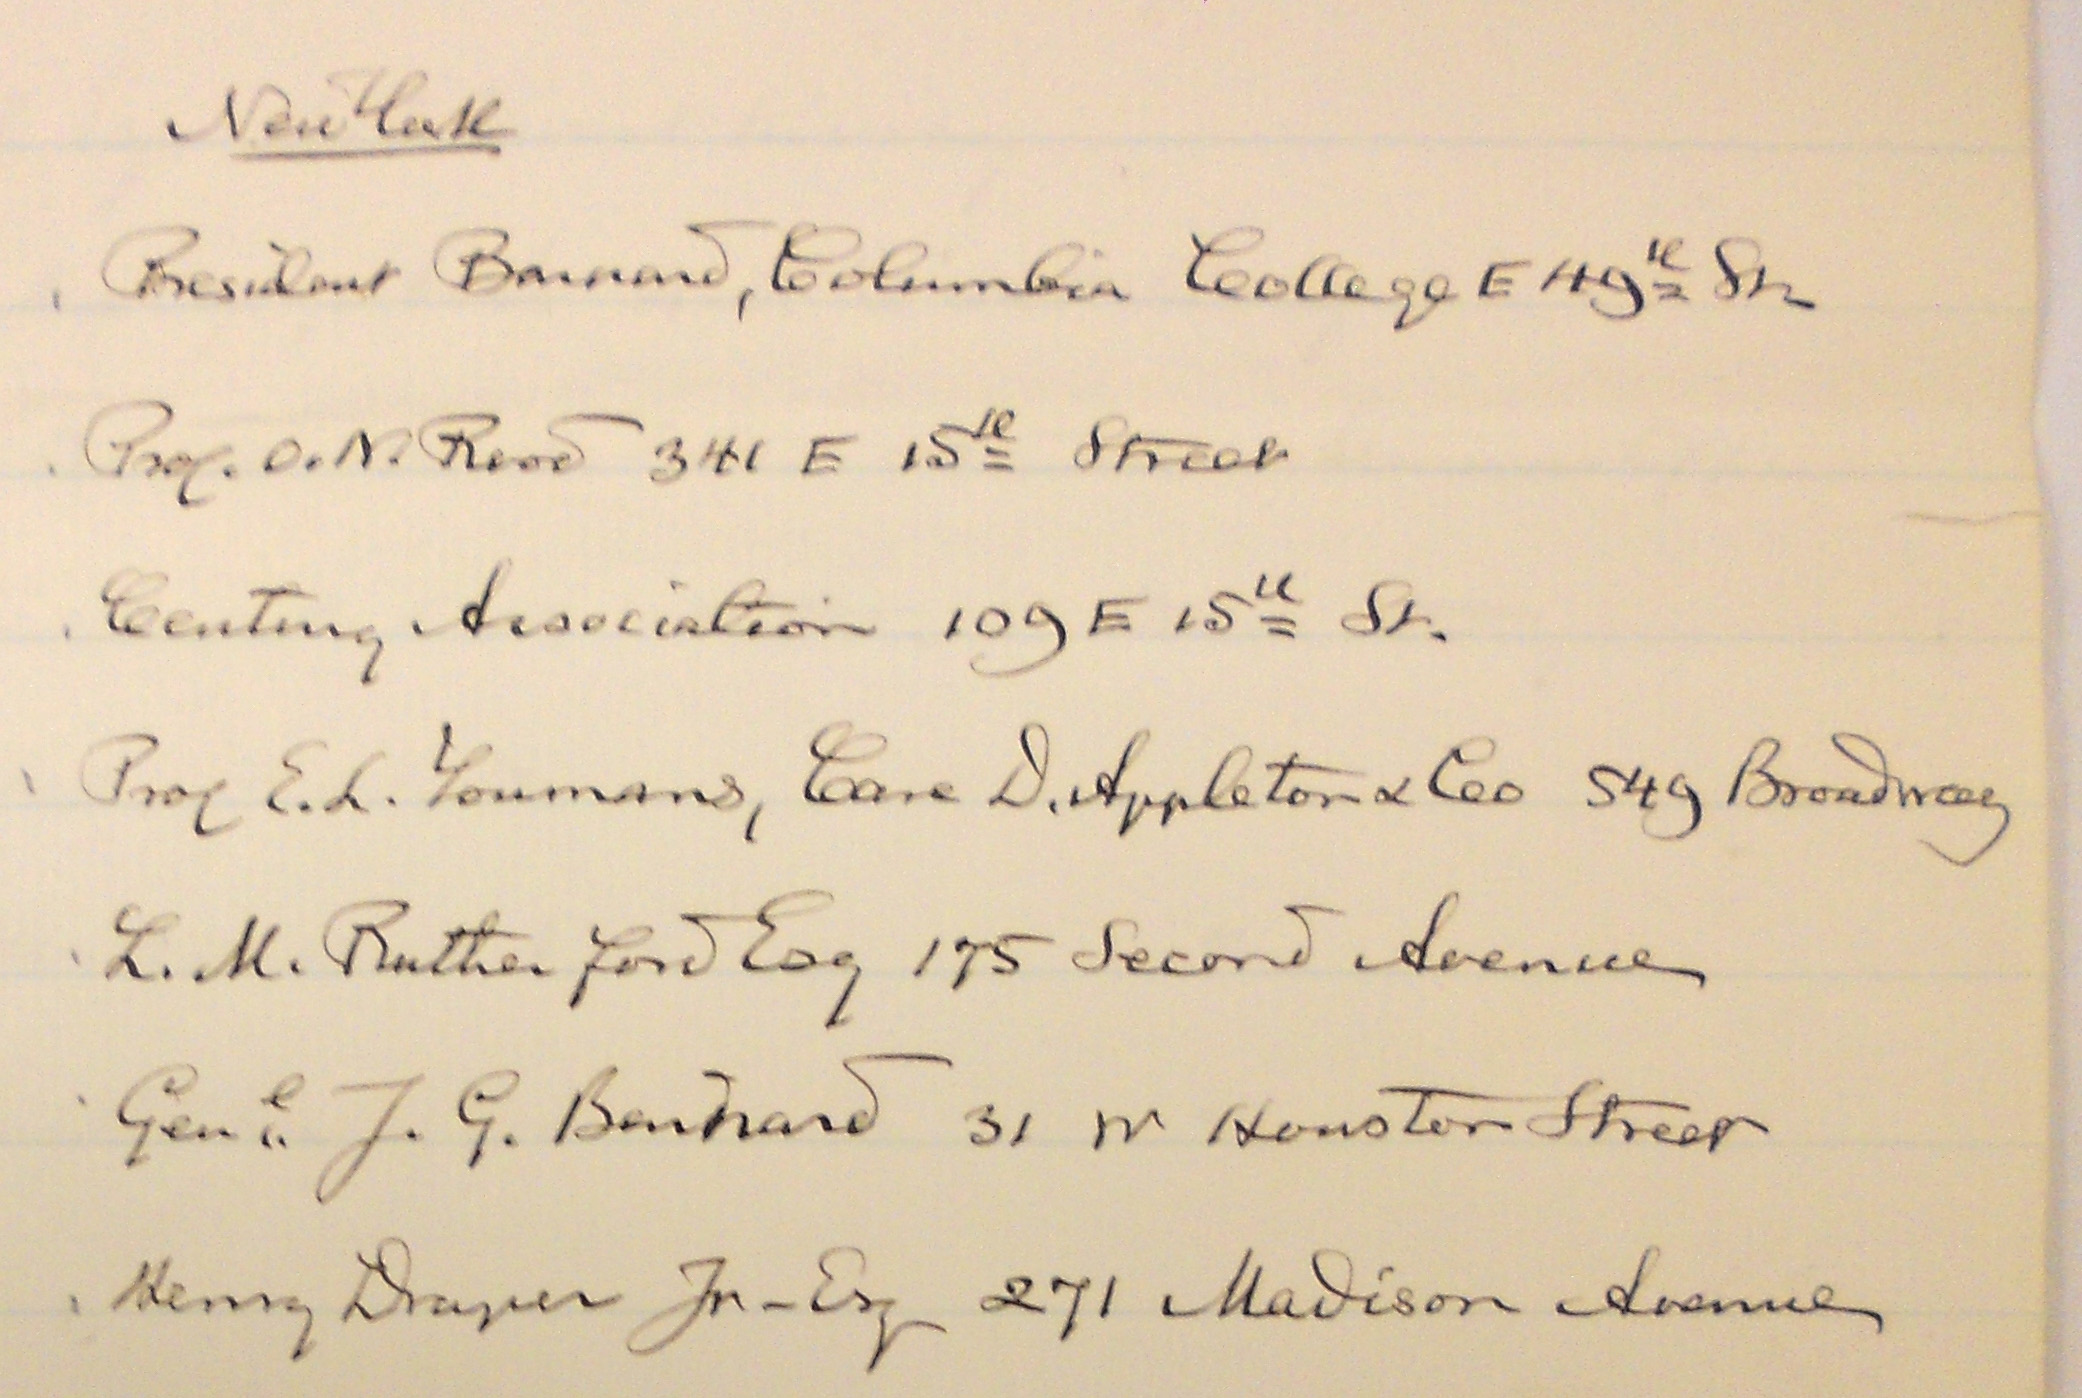 New York
President Barnard, Columbia College E 49th St.
Prof. O. N. Rood 341 E 15th Street
Century Association 109 E 15th St.
Prof E. L. Youmans, Care D. Appleton & Co 549 Broadway
L. M. Rutherford Esq 175 Second Avenue
Genl. J. G. Barnard 31 W Houston Street
Henry Draper Jr - Esq 271 Madison Avenue